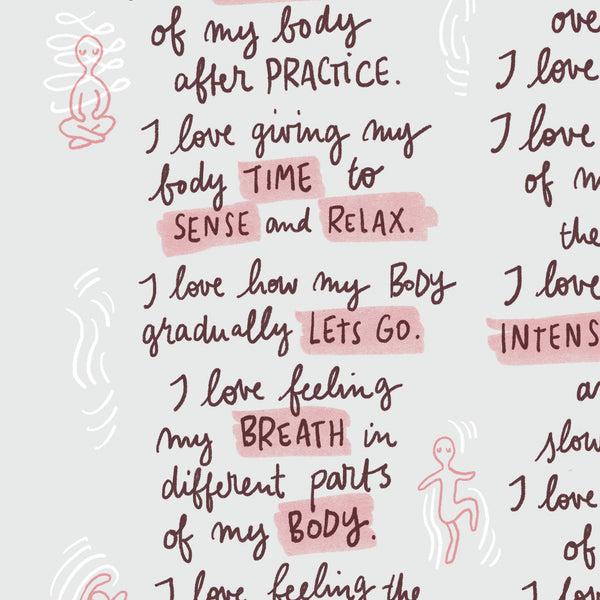 of my body
after PRACTICE.
I love giving my
body TIME to
SENSE and RELAX.
I love how my BODY
gradually LETS GO.
I love feeling
my BREATH in
different parts
of my BODY.
I love feeling the
I love
I love
of
I love
I love
of